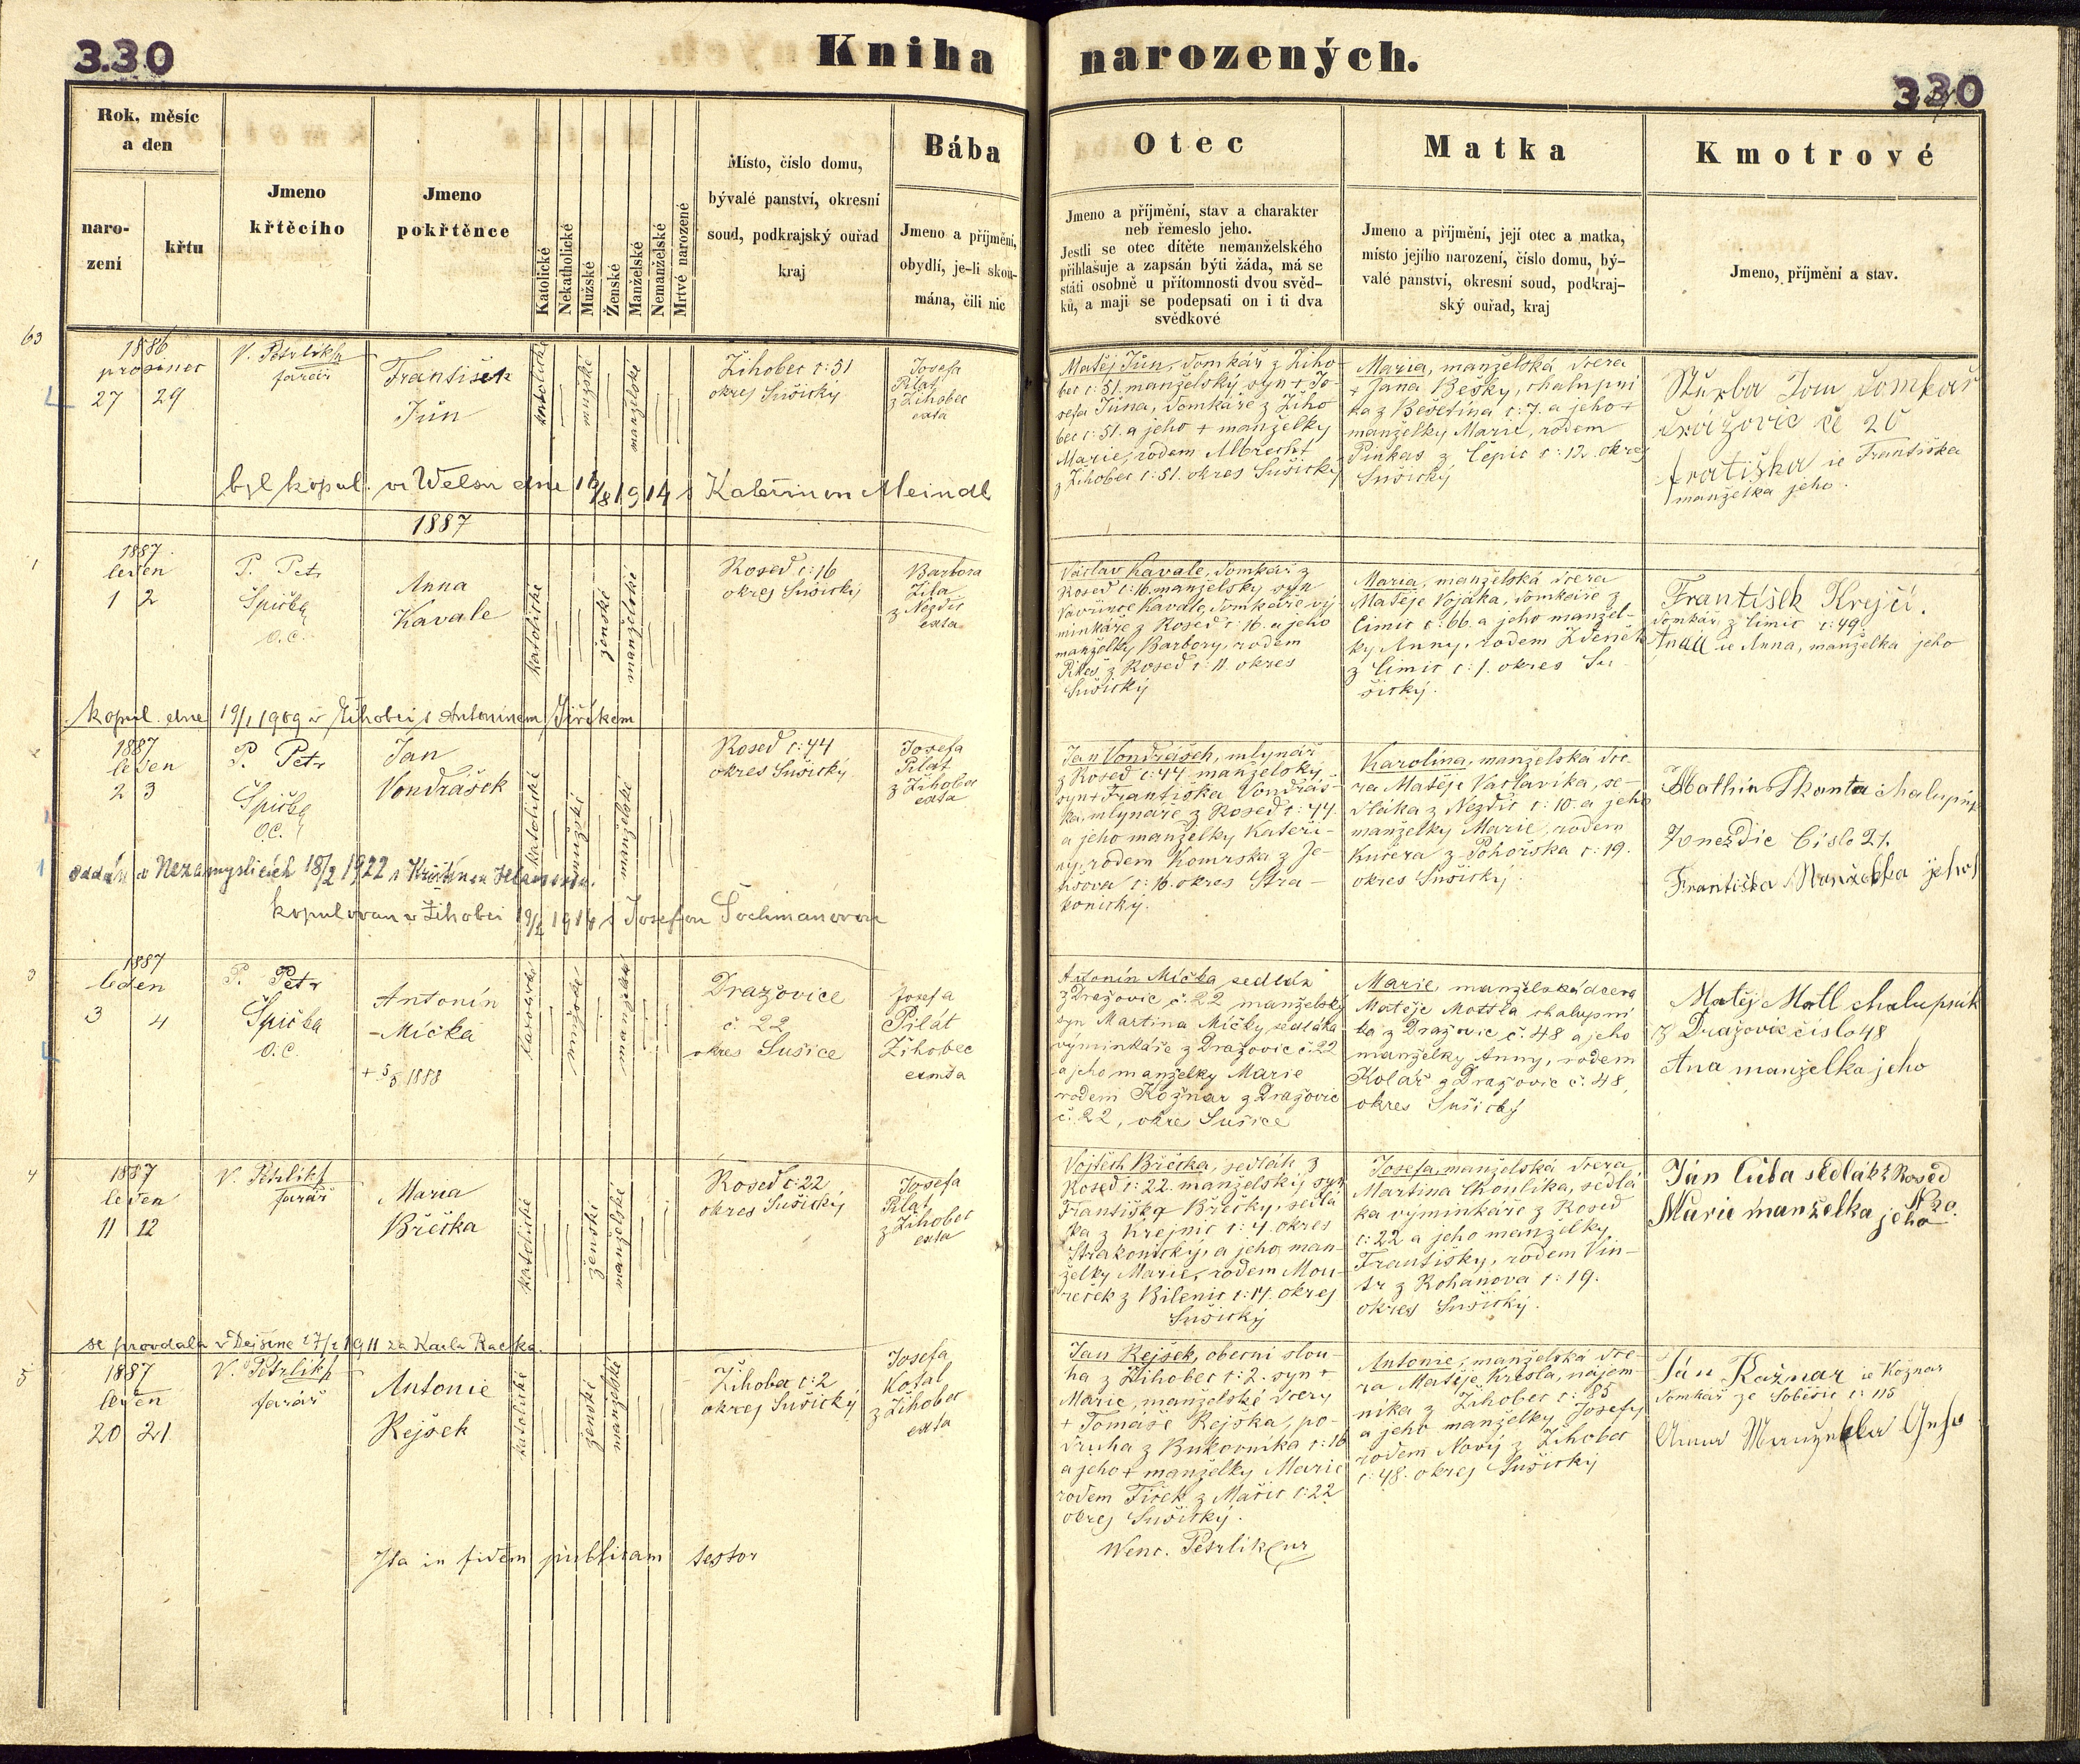 330
Kniha narozených.
330
Rok, měsíc
a den
naro-
zení
křtu
Jmeno
křtěcího
Jmeno
pokřtěnce
Katolické
Nekatholické
Mužské
Ženské
Manželské
Nemanželské
Mrtvé narozené
Místo, číslo domu,
bývalé panství, okresní
soud, podkrajský ouřad
kraj
Bába
Jmeno a příjmění,
obydlí, je-li skou-
mána, čili nic
Otec
Jmeno a příjmění, stav a charakter
neb řemeslo jeho.
Jestli se otec dítěte nemanželského
přihlašuje a zapsán býti žáda, má se
státi osobně u přítomnosti dvou svěd-
ků, a mají se podepsati on i ti dva
svědkové
Matka
Jmeno a příjmění, její otec a matka,
místo jejího narození, číslo domu, bý-
valé panství, okresní soud, podkraj-
ský ouřad, kraj
Kmotrové
Jmeno, příjmění a stav.
63
1886
prosinec
27 29
V. Petrlík
farář
František
Jůn
katolické
mužské
manželské
Žihobec č: 51
okres Sušický
Josefa
Pilat
z Žihobec
exta
Matěj Jůn, domkář z Žiho-
bec č: 51. manželský syn + Jo-
sefa Jůna, domkáře z Žiho
bec č: 51. a jeho + manželky
Marie, rodem Albrecht
z Žihobec č: 51. okres Sušický
Maria, manželská dcera
+ Jana Bešky, chalupní
ka z Bešetína č: 7. a jeho +
manželky Marie, rodem
Pinkas z Čepic č: 12. okres
Sušický
domkař
20
Františka
manželka jeho.
byl kopul. ve Welsu dne 16/8 1914 s Kateřinou Meindl
1887
1
1887.
leden
1 2
P. Petr
Špička
o.c.
Anna
Kavale
katolické
ženské
manželské
Roseď č: 16
okres Sušický
Barbora
Žila
z Nezdic
exta
Václav Kavale, domkář z
Roseď č: 16. manželský syn
Vavřince Kavale, domkáře vý
minkáře z Roseď č: 16. a jeho
manželky Barbory, rodem
z Roseď č: 11. okres
Sušický
Maria, manželská dcera
Matěje Vojáka, domkáře z
Čimic č: 66. a jeho manžel-
ky Anny, rodem Zdeněk
z Čimic č: 1. okres Su-
šický.
František Krejčí.
domkář z Čimic č: 49.
Anna, manželka jeho
kopul. dne 19/1 1909 v Žihobci s Antonínem Jiříkem
2
1887
leden
2 3
P. Petr
Špička
o.c.
Jan
Vondrášek
katolické
mužské
manželské
Roseď č: 44
okres Sušický
Josefa
Pilát
z Žihobec
exta
Jan Vondrášek, mlynář
z Roseď č: 44 manželský
syn + Františka Vondráš-
ka, mlynáře z Roseď č: 44.
a jeho manželky Kateři-
ny, rodem Komrska z Je-
č: 16. okres Stra-
konický.
Karolina, manželská dce-
ra Matěje Vaclavíka, se-
dláka z Nezdic č: 10. a jeho
manželky Marie, rodem
Kučera z Pohořska č: 19.
okres Sušický.
chalupník
Číslo 21.
Františka Manželka jeho
oddán v Nezamyslicích 18/2 1922 s Kristinou
kopulovan v Žihobci s Josefou Tochmanovou
3
1887
leden
3 4
P. Petr
Špička
o.c.
Antonín
-Míčka
+ 5/5 1888
mužské
manželské
Dražovice
č. 22
okres Sušice
Josefa
Pilát
Žihobec
Antonín Míčka sedlák
z Dražovic č. 22 manželský
syn Martina Míčky sedláka
výminkáře z Dražovic č. 22
a jeho manželky Marie
rodem Kožnar z Dražovic
č. 22, okres Sušice
Marie manželská dcera
Matěje Mottla chalupní
ka z Dražovic č. 48 a jeho
manželky Anny, rodem
Kolář z Dražovic č. 48,
okres Sušický
Matěj Motl chalupník
z Dražovic číslo 48
Ana manželka jeho
4
1887
leden
11 12
V. Petrlík
farář
Maria
Břečka
katolické
ženské
manželské
Roseď č: 22
okres Sušický
Josefa
Pilat
z Žihobec
exta
Vojtěch Břečka, sedlák z
Roseď č: 22. manželský syn
Františka Břečky, sedlá
ka z Krejnic č: 4. okres
Strakonický, a jeho man-
želky Marie, rodem Mou-
reček z Bilenic č: 17. okres
Sušický
Josefa, manželská dcera
Martina Choulíka, sedlá
ka výminkáře z Roseď
č: 22 a jeho manželky
Františky, rodem Vin-
tr z Rohanova č: 19.
okres Sušický.
Ján Cuba sedlák z Roseď
Marie manželka jeho
se provdala v Dejšině 27/2 1911 za Karla Racka.
5
1887
leden
20 21
V. Petrlík
farář
Antonie
Rejšek
katolické
ženské
manželské
Žihobec č: 2
okres Sušický
Josefa
Košal
z Žihobec
exta
Jan Rejšek, obecní slou-
ha z Žihobec č: 2. syn +
Marie, manželské dcery
+ Tomáše Rejška, po-
druha z Bukovníka č: 16
a jeho + manželky Marie
rodem Fiřek z Mačic č: 22
okres Sušický.
Antonie, manželská dce-
ra Matěje Kresla, nájem-
níka z Žihobec č: 85
a jeho manželky Josefy
rodem Nový z Žihobec
č: 48. okres Sušický
Ján Kožnar ie Kožnar
domkář ze Soběšic č: 115
Anna Manželka
Ita in fidem publicam testor
Wenc. Petrlik